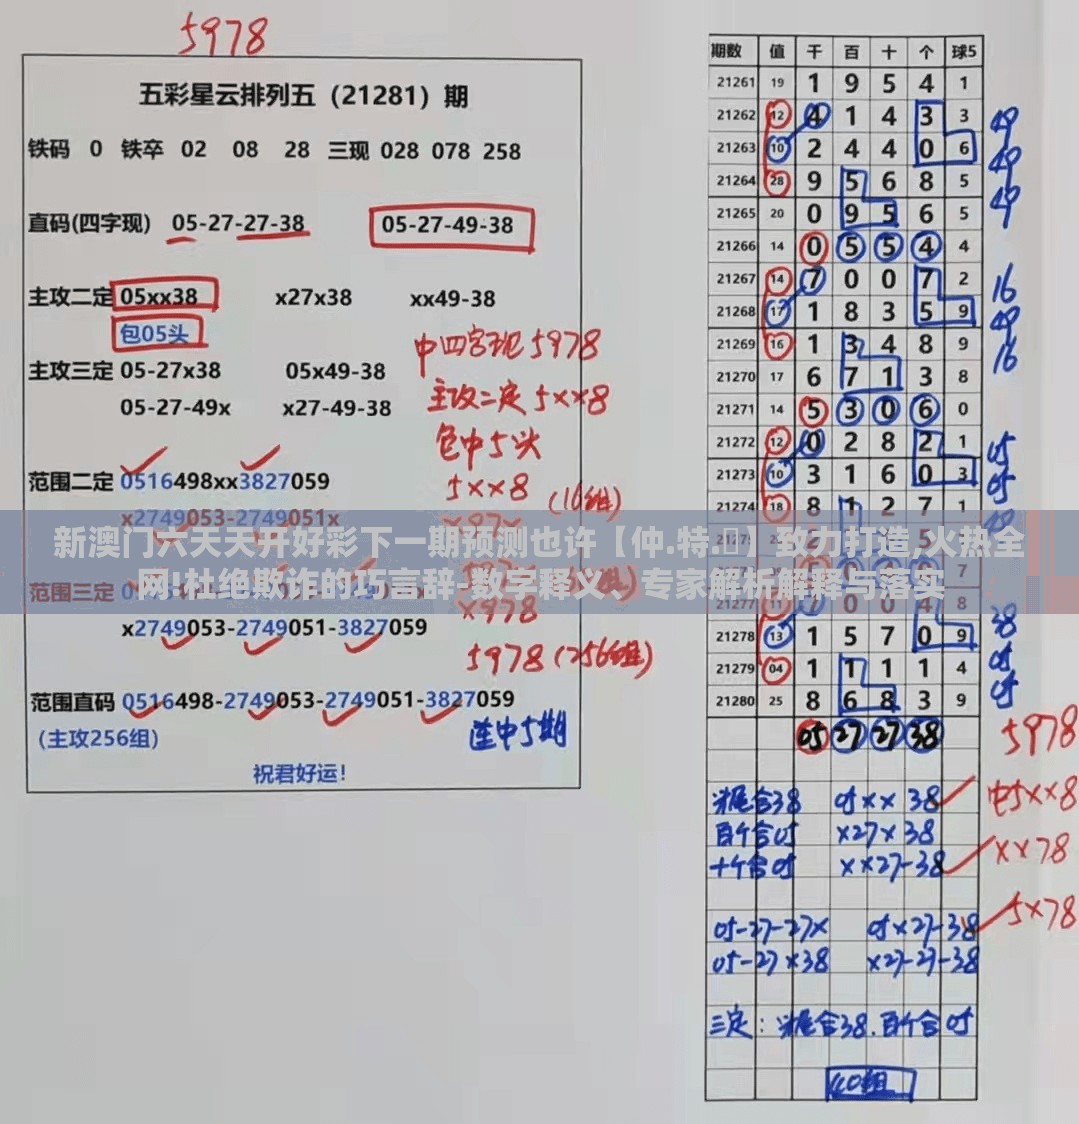 5978
五彩星云排列五（21281）期
铁码 0 铁卒 02 08 28 三现 028 078 258
直码(四字现) 05-27-27-38 05-27-49-38
主攻二定 05xx38 x27x38 xx49-38
包05头
中四字现5978
主攻三定 05-27x38 05x49-38
主攻二定5xx8
05-27-49x x27-49-38
包中5头
范围二定 0516498xx3827059
5xx8 (16组)
x2749053-2749051x
x97x
新澳门六天天开好彩下一期预测也许【仲.特.】致力打造,火热全
网!杜绝欺诈的巧言辞-数字释义、专家解析解释与落实
范围三定
x2749053-2749051-3827059
x978
5978(256组)
范围直码 0516498-2749053-2749051-3827059
(主攻256组)
连中5期
祝君好运!
期数 值 千 百 十 个 球5
21261 19 1 9 5 4 1
21262 12 4 1 4 3 3 49
21263 10 2 4 4 0 6 49
21264 28 9 5 6 8 5 49
21265 20 0 9 5 6 5
21266 14 0 5 5 4 4
21267 14 7 0 0 7 2 16
21268 17 1 8 3 5 9 49
21269 16 1 3 4 8 9 16
21270 17 6 7 1 3 8
21271 14 5 3 0 6 0
21272 12 0 2 8 2 1 05
21273 10 3 1 6 0 3 05
21274 18 8 1 2 7 1
7
21277 11 0 0 4 8
21278 13 1 5 7 0 9 38
21279 04 1 1 1 1 4 05
21280 25 8 6 8 3 9 05
05 27 27 38 5978
头尾合38 05xx38 中5xx8
百个合05 x27x38
十个合05 xx27-38 xx78
05-27-27x 05x27-38 5x78
05-27x38 x27-27-38
三定：头尾合38.百个合05
40组